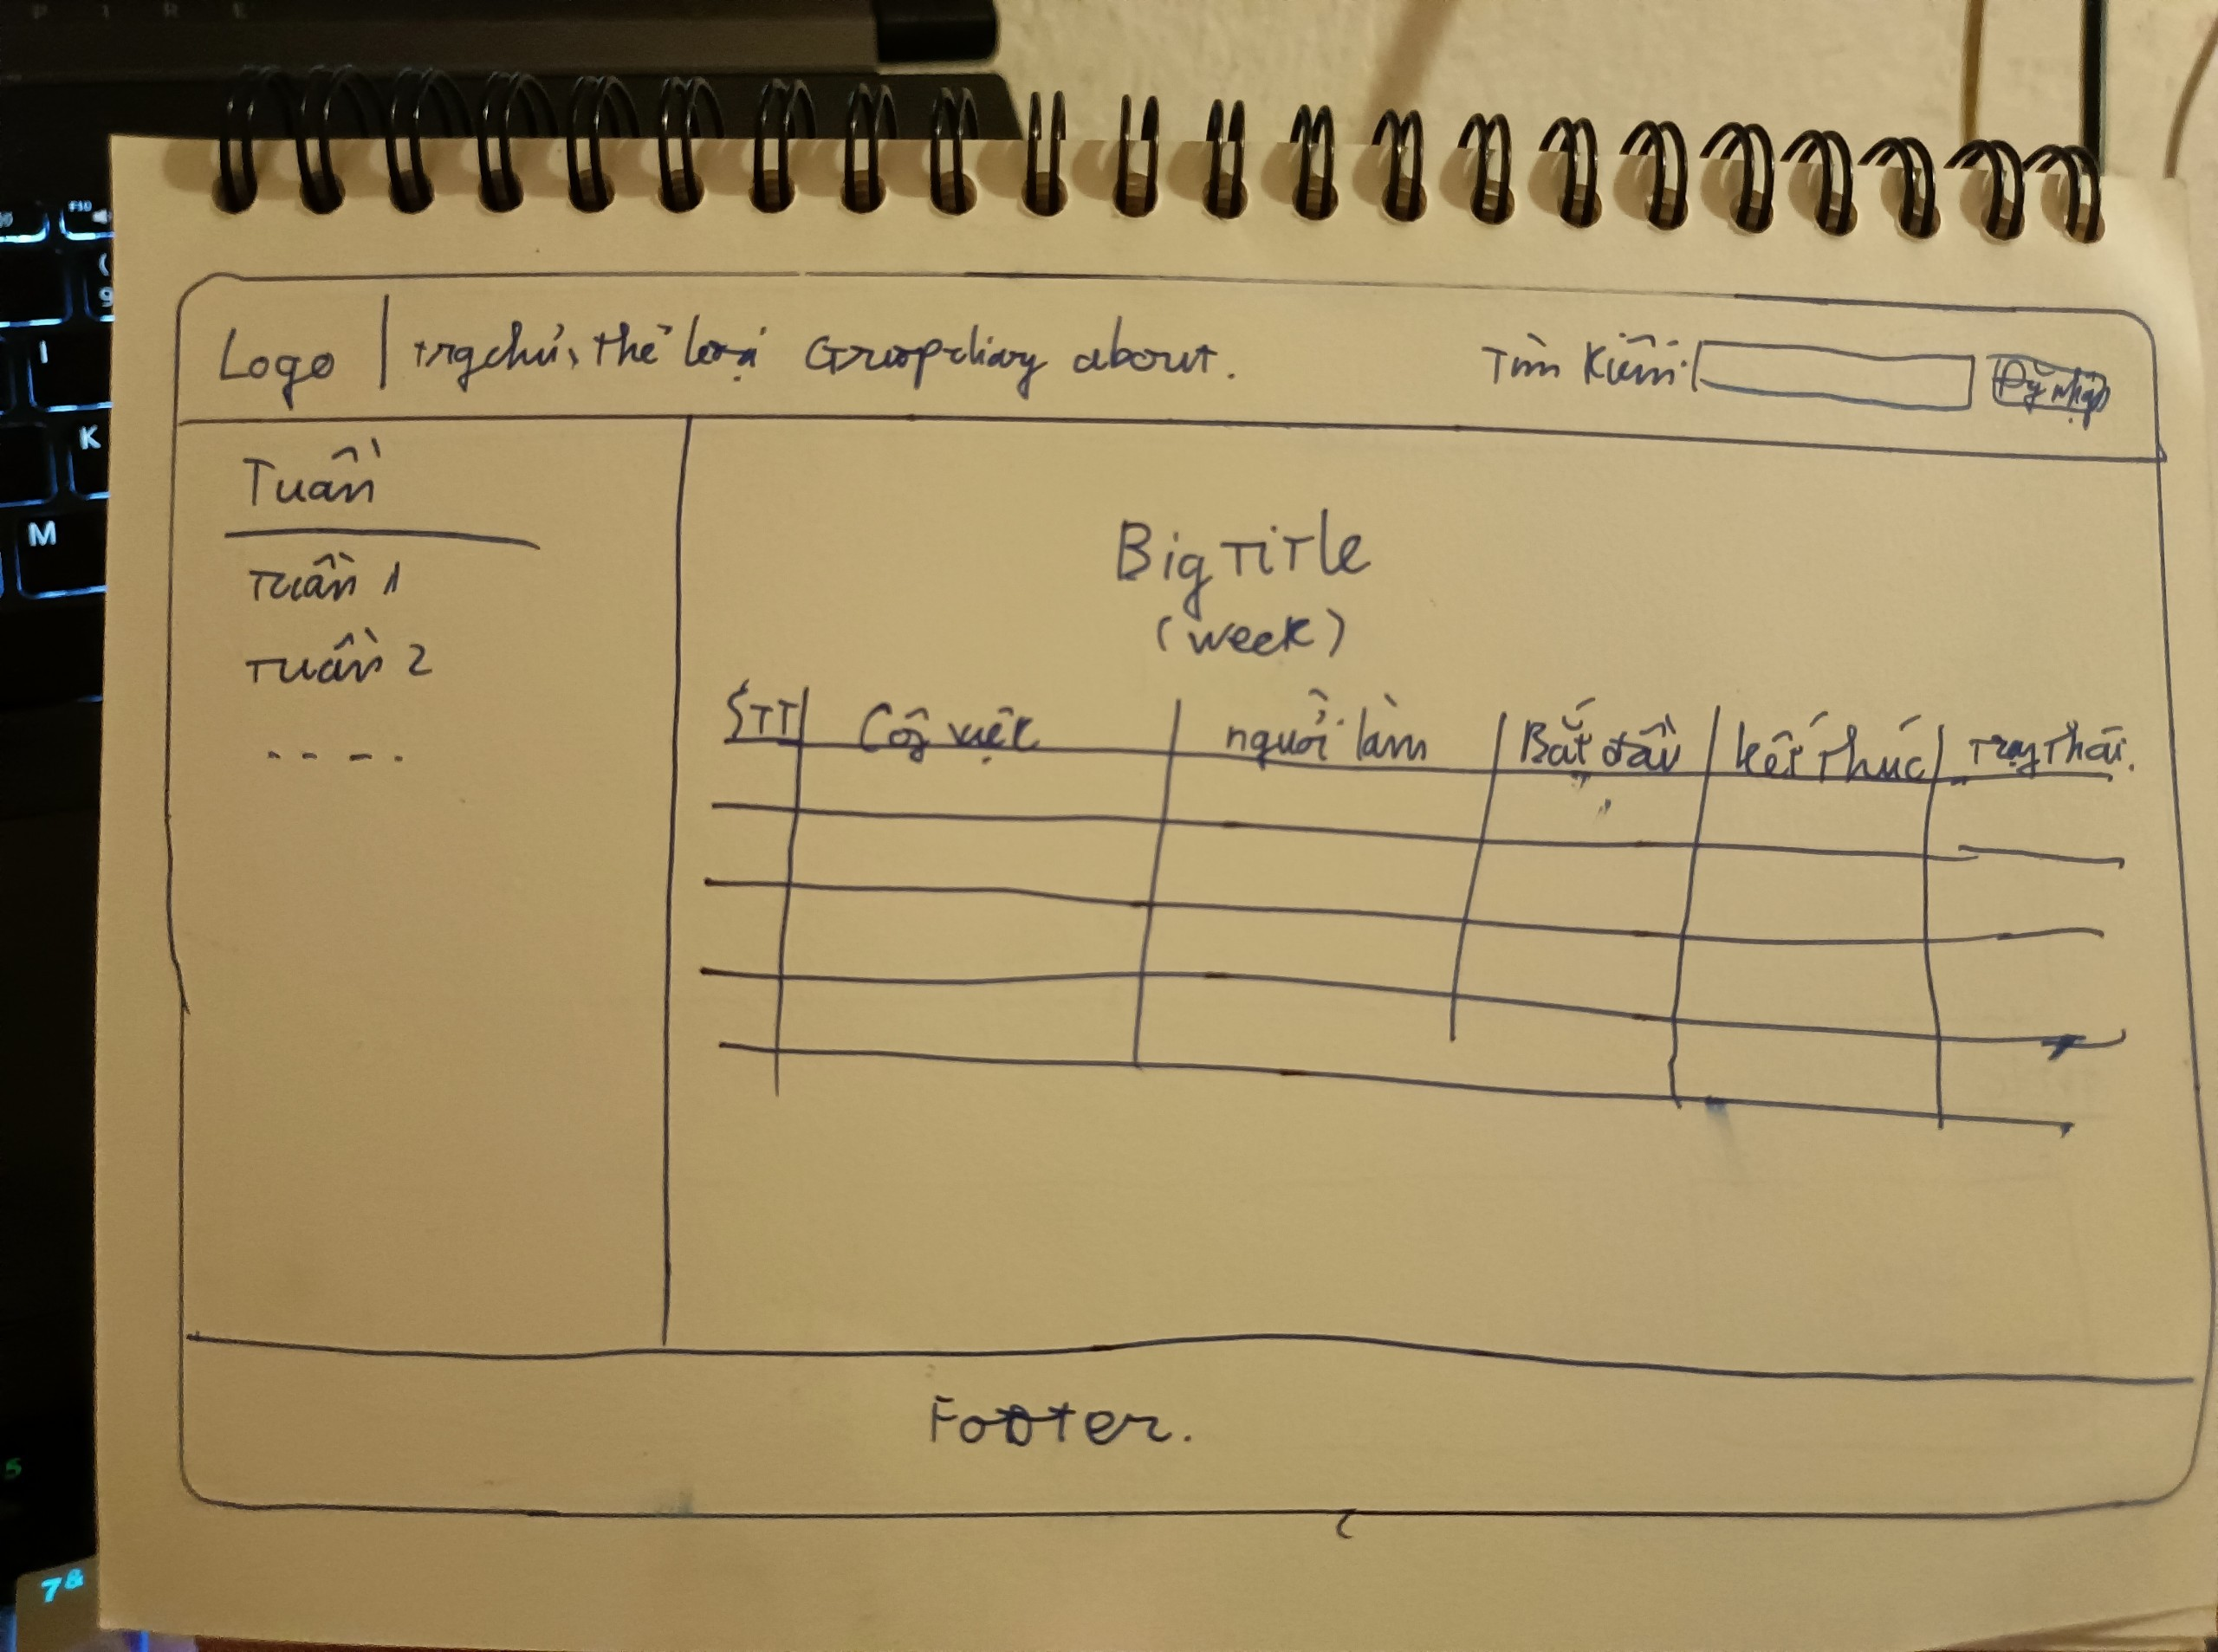 P I R E
F10
( 9
I
K
M
5
7 &
Logo | trg chủ, thể loại Groupdiary about. Tìm Kiếm: Đg nhập
Tuần
Tuần 1
Tuần 2
- - - -
Big Title
(week)
STT Côg việc người làm Bắt đầu kết thúc Trạg thái.
Footer.